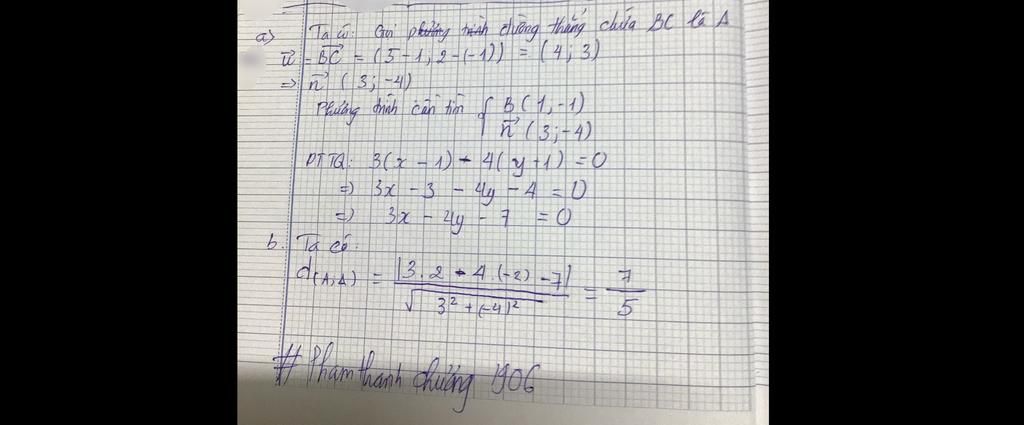 a) Ta có: Gọi phương trình đường thẳng chứa BC là Δ
u⃗ = BC⃗ = (5-1; 2-(-1)) = (4; 3)
=> n⃗ (3; -4)
Phương trình cần tìm { B(1,-1)
n⃗ (3;-4)
PTTQ: 3(x - 1) - 4(y+1) = 0
=> 3x - 3 - 4y - 4 = 0
=> 3x - 4y - 7 = 0
b. Ta có:
d(A,Δ) = |3.2 - 4.(-2) - 7| / √3² + (-4)² = 7/5
# Phamthanh chương 1906